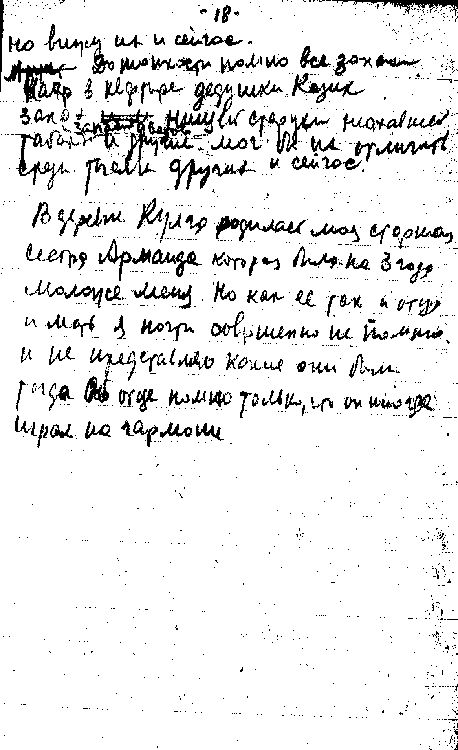 - 18 -
но вижу их и сейчас.
До тонкости помню все запахи
напр в квартире дедушки Казик
запах нищей старухи нюхавшей
запах цветов
табак и другие. мог бы их отличить
среди тысячи других и сейчас.
В деревне родилась моя
сестра Армаида которая была на 3 года
моложе меня. Но как ее так и отца
и мать я почти совершенно не помню.
и не представляю какие они были
тогда Об отце помню только, что он иногда
играл на гармони